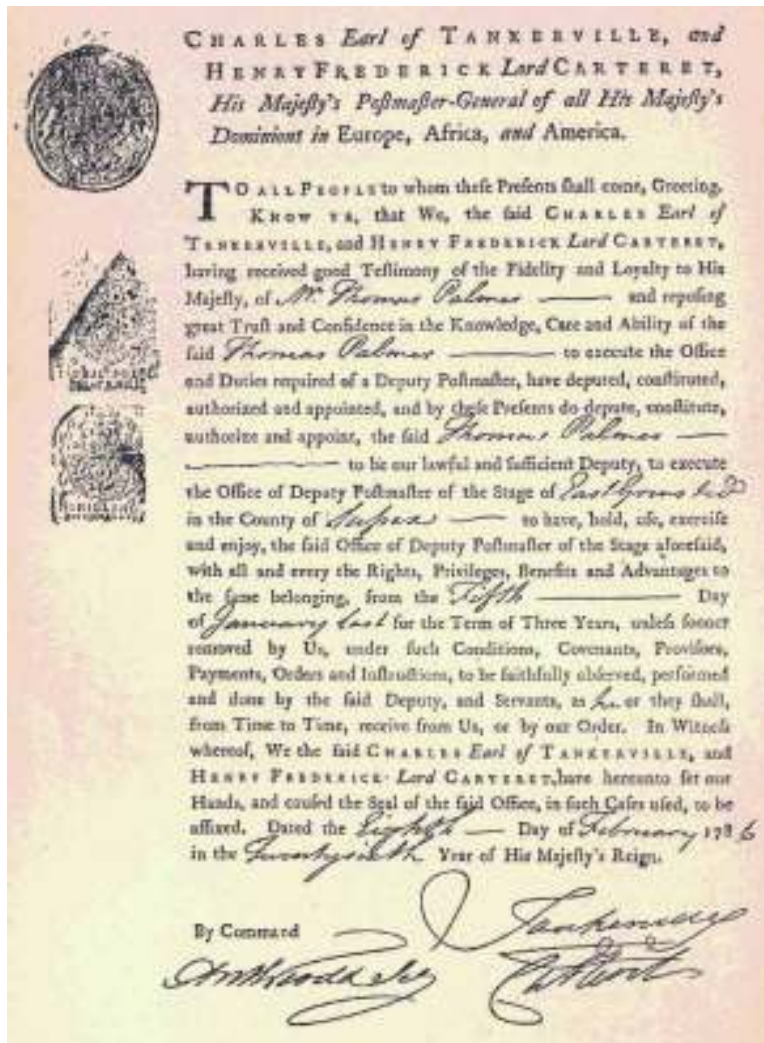 CHARLES Earl of TANKERVILLE, and
HENRY FREDERICK Lord CARTERET,
His Majeſty's Poſtmaſter-General of all His Majeſty's
Dominions in Europe, Africa, and America.
TO ALL PEOPLE to whom theſe Preſents ſhall come, Greeting.
KNOW YE, that We, the ſaid CHARLES Earl of
TANKERVILLE, and HENRY FREDERICK Lord CARTERET,
having received good Teſtimony of the Fidelity and Loyalty to His
Majeſty, of Mr. Thomas Palmer and repoſing
great Truſt and Confidence in the Knowledge, Care and Ability of the
ſaid Thomas Palmer to execute the Office
and Duties required of a Deputy Poſtmaſter, have deputed, conſtituted,
authorized and appointed, and by theſe Preſents do depute, conſtitute,
authorize and appoint, the ſaid Thomas Palmer
to be our lawful and ſufficient Deputy, to execute
the Office of Deputy Poſtmaſter of the Stage of East Grinsted
in the County of Suſsex to have, hold, uſe, exerciſe
and enjoy, the ſaid Office of Deputy Poſtmaſter of the Stage aforeſaid,
with all and every the Rights, Privileges, Benefits and Advantages to
the ſame belonging, from the Fifth Day
of January last for the Term of Three Years, unleſs ſooner
removed by Us, under ſuch Conditions, Covenants, Proviſoes,
Payments, Orders and Inſtructions, to be faithfully obſerved, performed
and done by the ſaid Deputy, and Servants, as he or they ſhall,
from Time to Time, receive from Us, or by our Order. In Witneſs
whereof, We the ſaid CHARLES Earl of TANKERVILLE, and
HENRY FREDERICK Lord CARTERET, have hereunto ſet our
Hands, and cauſed the Seal of the ſaid Office, in ſuch Caſes uſed, to be
affixed. Dated the Eighth Day of February 1786
in the Twentysixth Year of His Majeſty's Reign.
By Command
Tankerville
Carteret